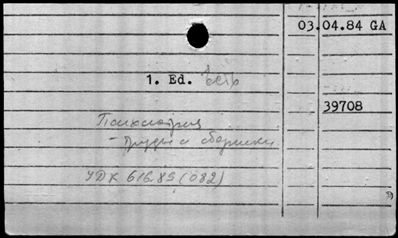 03.04.84 GA
1. Ed.
39708
Психиатрия
- Труды и сборники
УДК 616.89 (082)